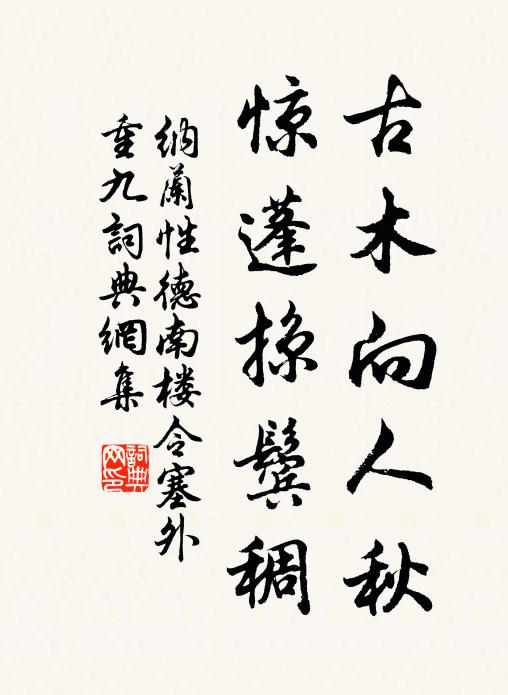 古木向人秋
惊蓬掠鬓稠
纳蘭性德南楼令塞外
重九詞典網集
詞典
网印